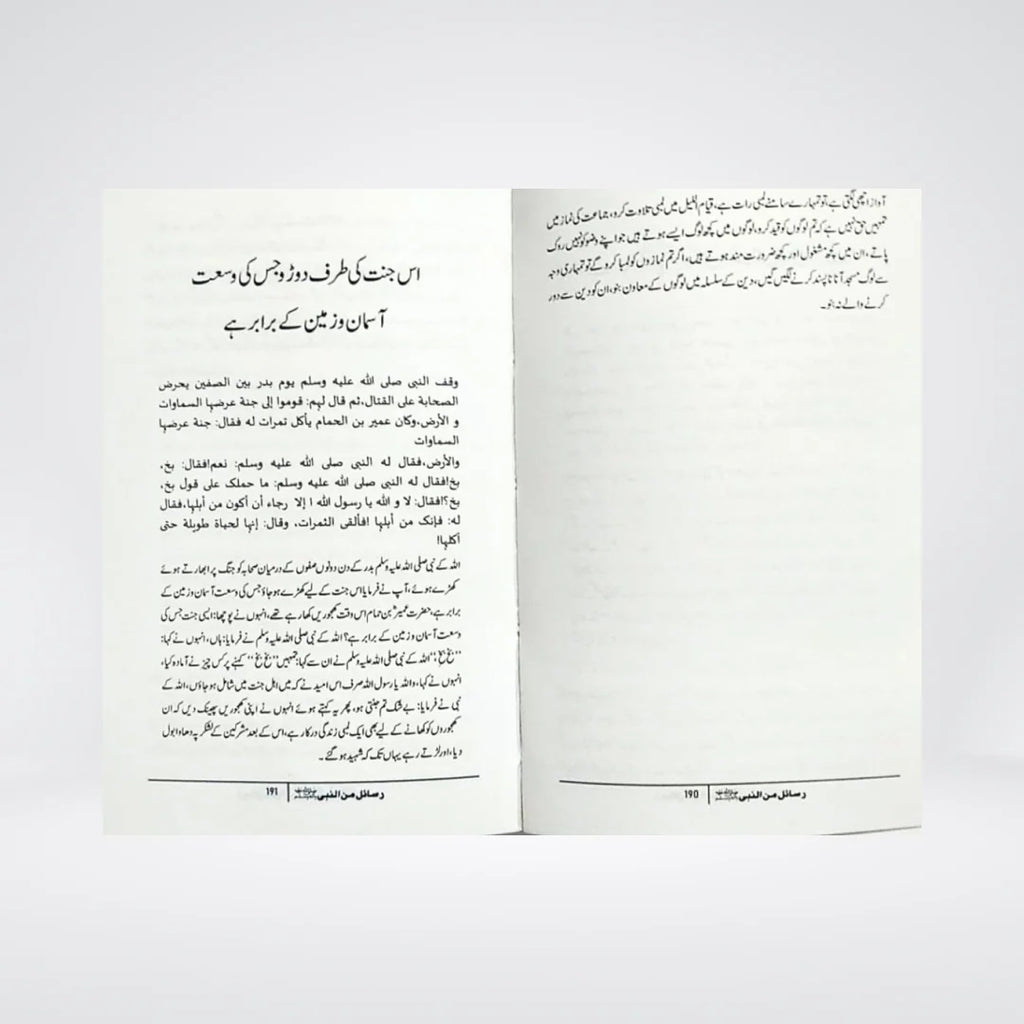 آواز اچھی لگتی ہے، تو تمہارے سامنے لمبی رات ہے، قیام اللیل میں لمبی تلاوت کرو، جماعت کی نماز میں
تمہیں حق نہیں ہے کہ تم لوگوں کو قید کرو، لوگوں میں کچھ لوگ ایسے ہوتے ہیں جو اپنے وضو کو نہیں روک
پاتے، ان میں کچھ مشغول اور کچھ ضرورت مند ہوتے ہیں، اگر تم نمازوں کو لمبا کرو گے تو تمہاری وجہ
سے لوگ مسجد آنا ناپسند کرنے لگیں گیں، دین کے سلسلہ میں لوگوں کے معاون بنو، ان کو دین سے دور
کرنے والے نہ بنو۔
رسائل من النبی
190
اس جنت کی طرف دوڑو جس کی وسعت
آسمان و زمین کے برابر ہے
وقف النبی صلی الله علیه وسلم یوم بدر بین الصفین یحرض
الصحابة علی القتال،ثم قال لہم: قوموا إلی جنة عرضہا السماوات
و الأرض،وکان عمیر بن الحمام یأکل تمرات له فقال: جنة عرضہا
السماوات
والأرض،فقال له النبی صلی الله علیه وسلم: نعم!فقال: بخ،
بخ!فقال له النبی صلی الله علیه وسلم: ما حملک علی قول بخ،
بخ؟!فقال: لا و الله یا رسول الله ا إلا رجاء أن أکون من أہلہا،فقال
له: فإنک من أہلہا !فألقی الثمرات، وقال: إنہا لحیاة طویلة حتی
أکلہا!
اللہ کے نبی صلی اللہ علیہ وسلم بدر کے دن دونوں صفوں کے درمیان صحابہ کو جنگ پر ابھارتے ہوئے
کھڑے ہوئے، آپ نے فرمایا اس جنت کے لیے کھڑے ہو جاؤ جس کی وسعت آسمان وزمین کے
برابر ہے، حضرت عمیرؓ بن حمام اس وقت کھجوریں کھا رہے تھے، انہوں نے پوچھا: ایسی جنت جس کی
وسعت آسمان و زمین کے برابر ہے؟ اللہ کے نبی صلی اللہ علیہ وسلم نے فرمایا: ہاں، انہوں نے کہا:
”بخ بخ“، اللہ کے نبی صلی اللہ علیہ وسلم نے ان سے کہا: تمہیں ”بخ بخ“ کہنے پر کس چیز نے آمادہ کیا،
انہوں نے کہا، واللہ یا رسول اللہ صرف اس امید نے کہ میں اہل جنت میں شامل ہو جاؤں، اللہ کے
نبی نے فرمایا: بے شک تم جنتی ہو، پھر یہ کہتے ہوئے انہوں نے اپنی کھجوریں پھینک دیں کہ ان
کھجوروں کو کھانے کے لیے بھی ایک لمبی زندگی درکار ہے، اس کے بعد مشرکین کے لشکر پہ دھاوا بول
دیا، اور لڑتے رہے یہاں تک کہ شہید ہو گئے۔
رسائل من النبی
191